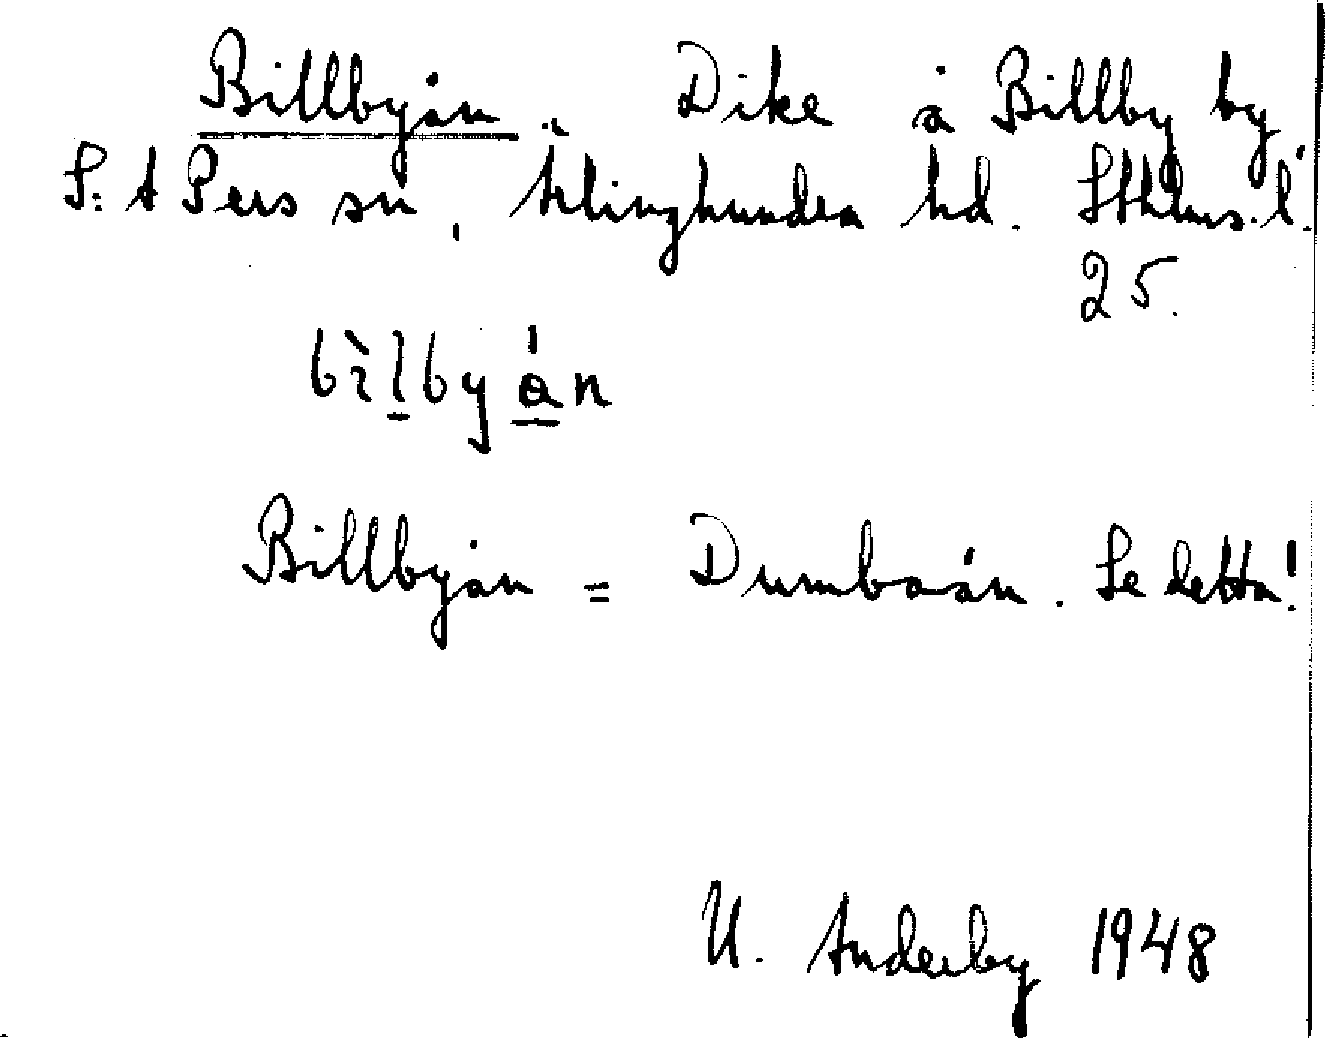 Billbyån. Dike å Billby by
S:t Pers sn, Ärlinghundra hd. Sthlms. l.
25.
bìlbyán
Billbyån = Dumboån. Se detta!
U. Anderby 1948